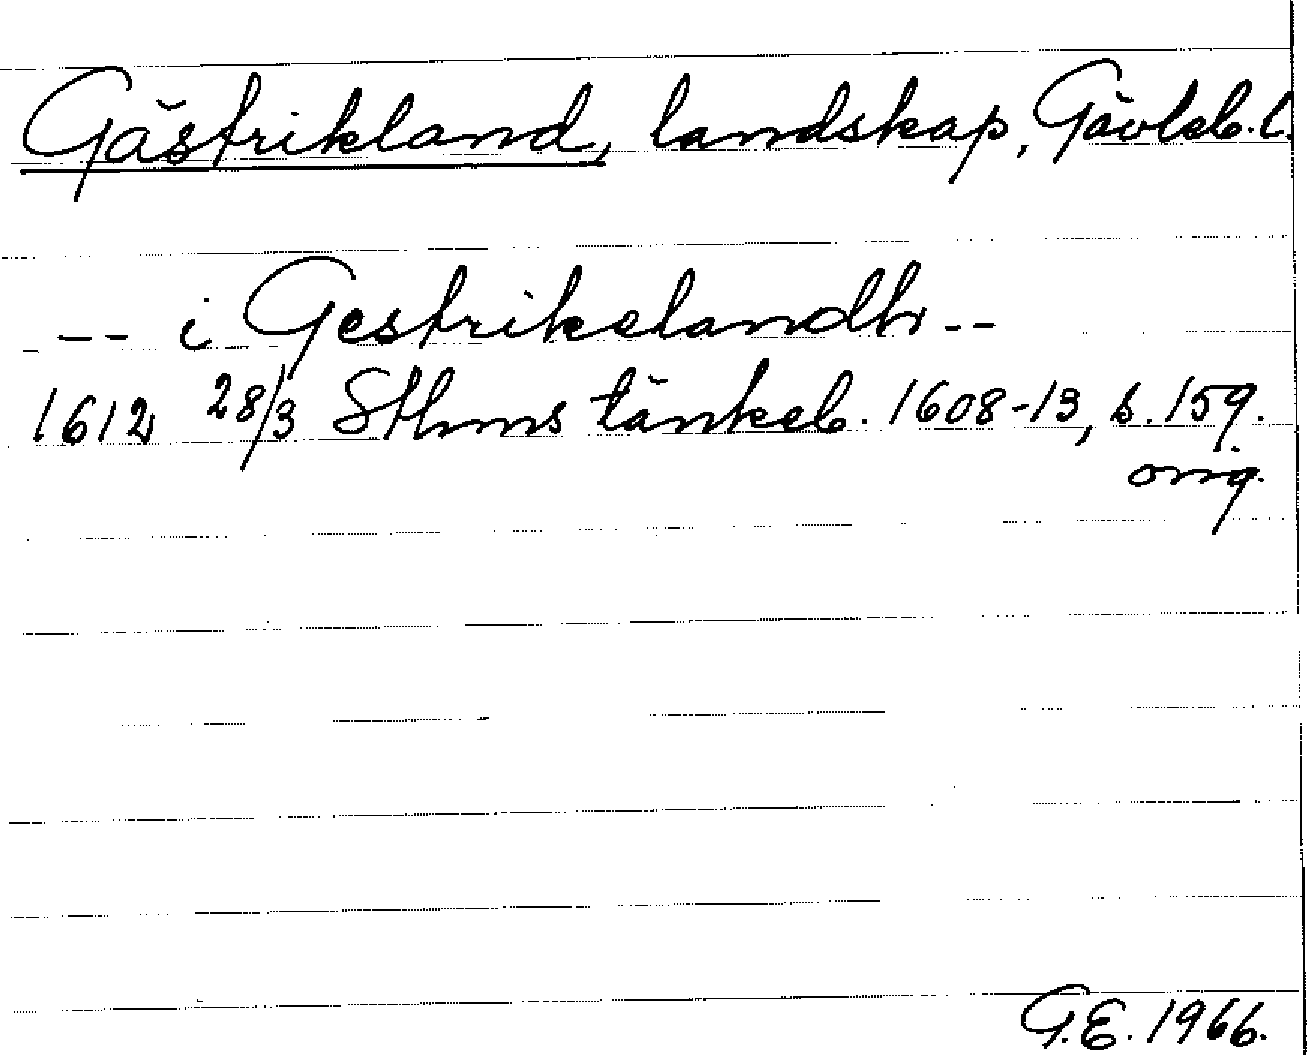 Gästrikland, landskap, Gävleb. l.
-- i Gestrikelandh --
1612 28/3 Sthms tänkeb. 1608-13, s. 159.
orig.
G.E. 1966.